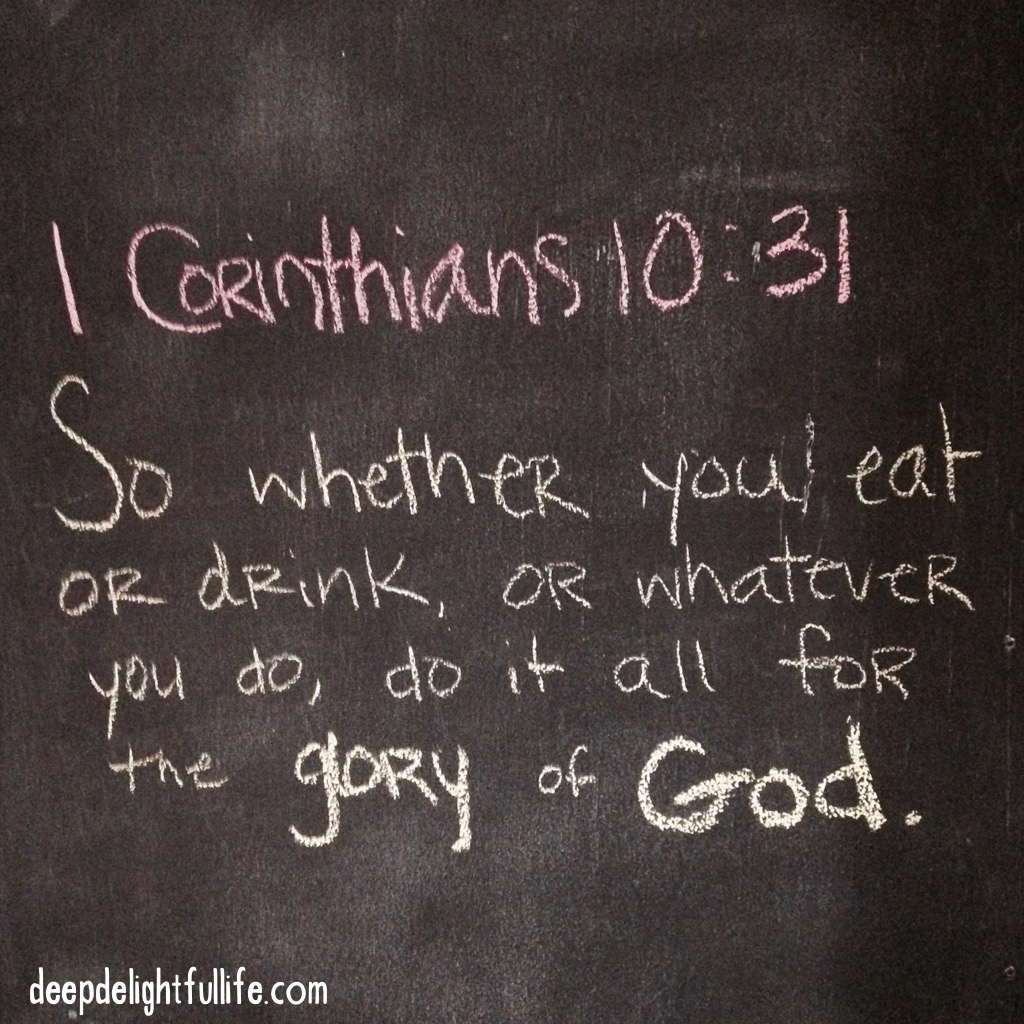 1 Corinthians 10:31
So whether you eat
or drink, or whatever
you do, do it all for
the glory of God.
deepdelightfullife.com